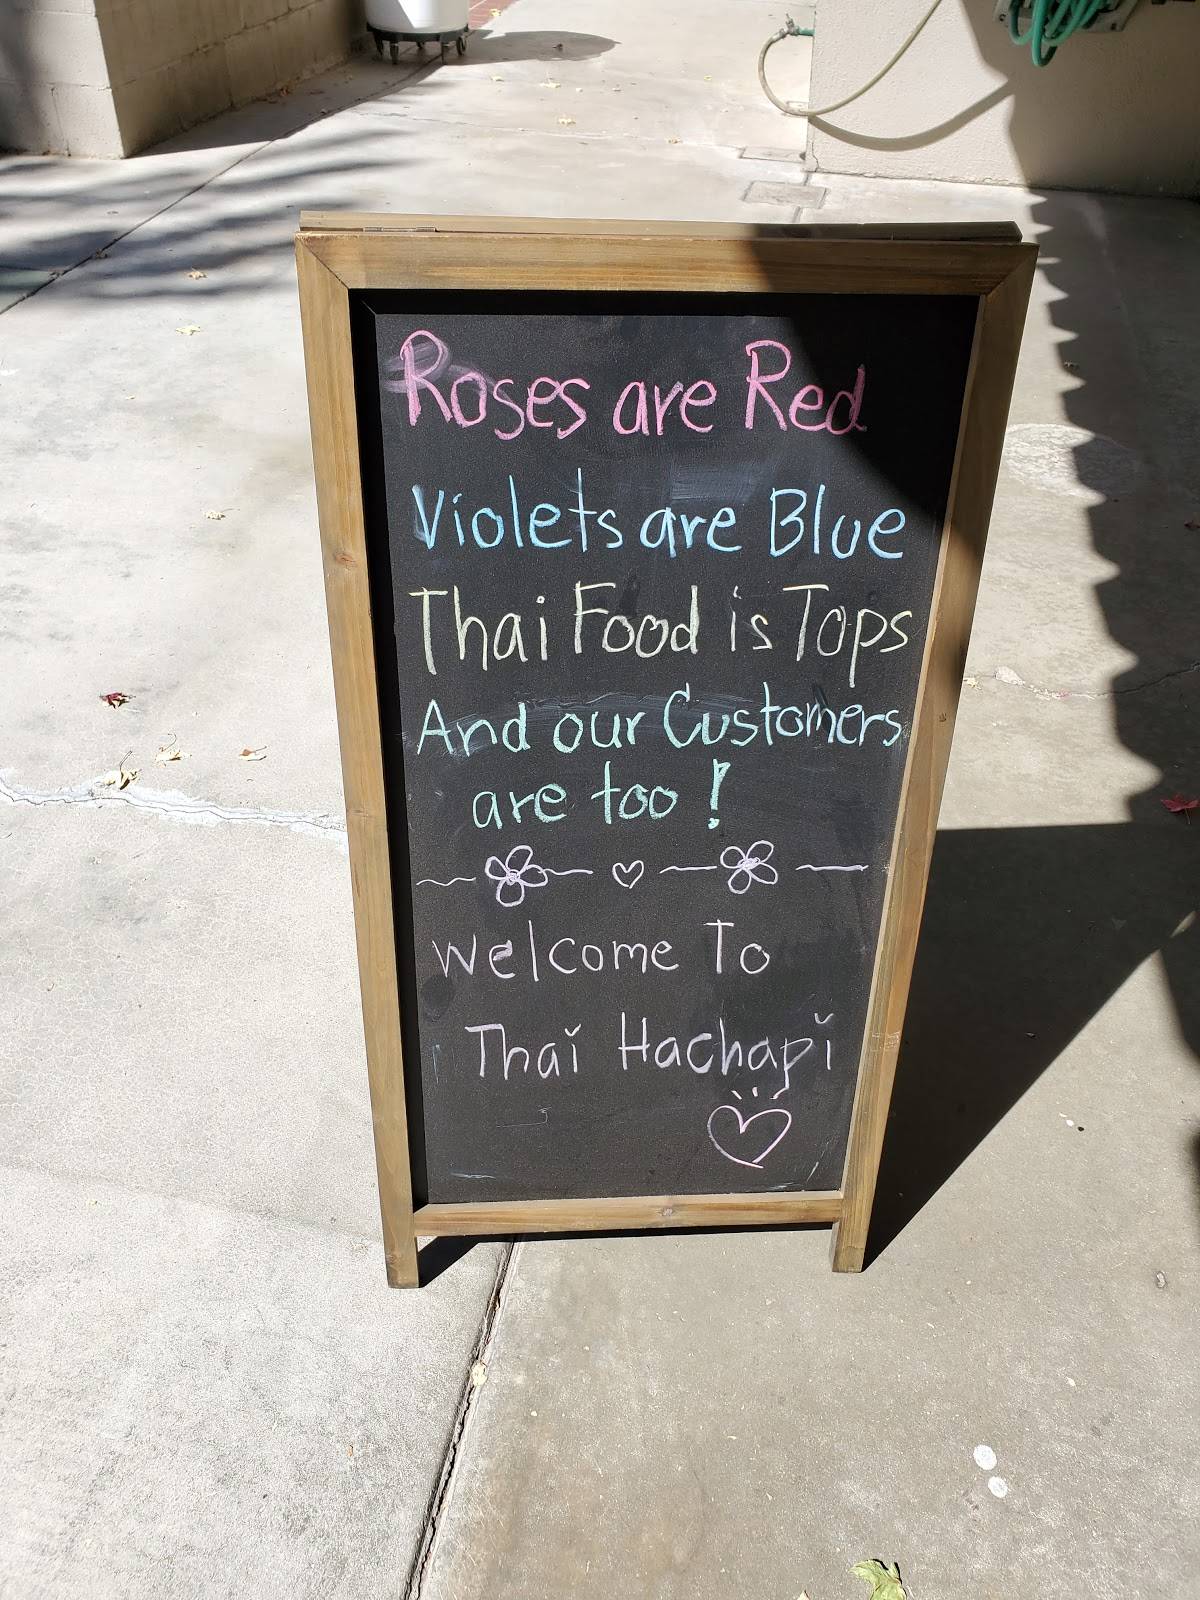 Roses are Red
Violets are Blue
Thai Food is Tops
And our Customers
are too!
Welcome To
Thai Hachapi